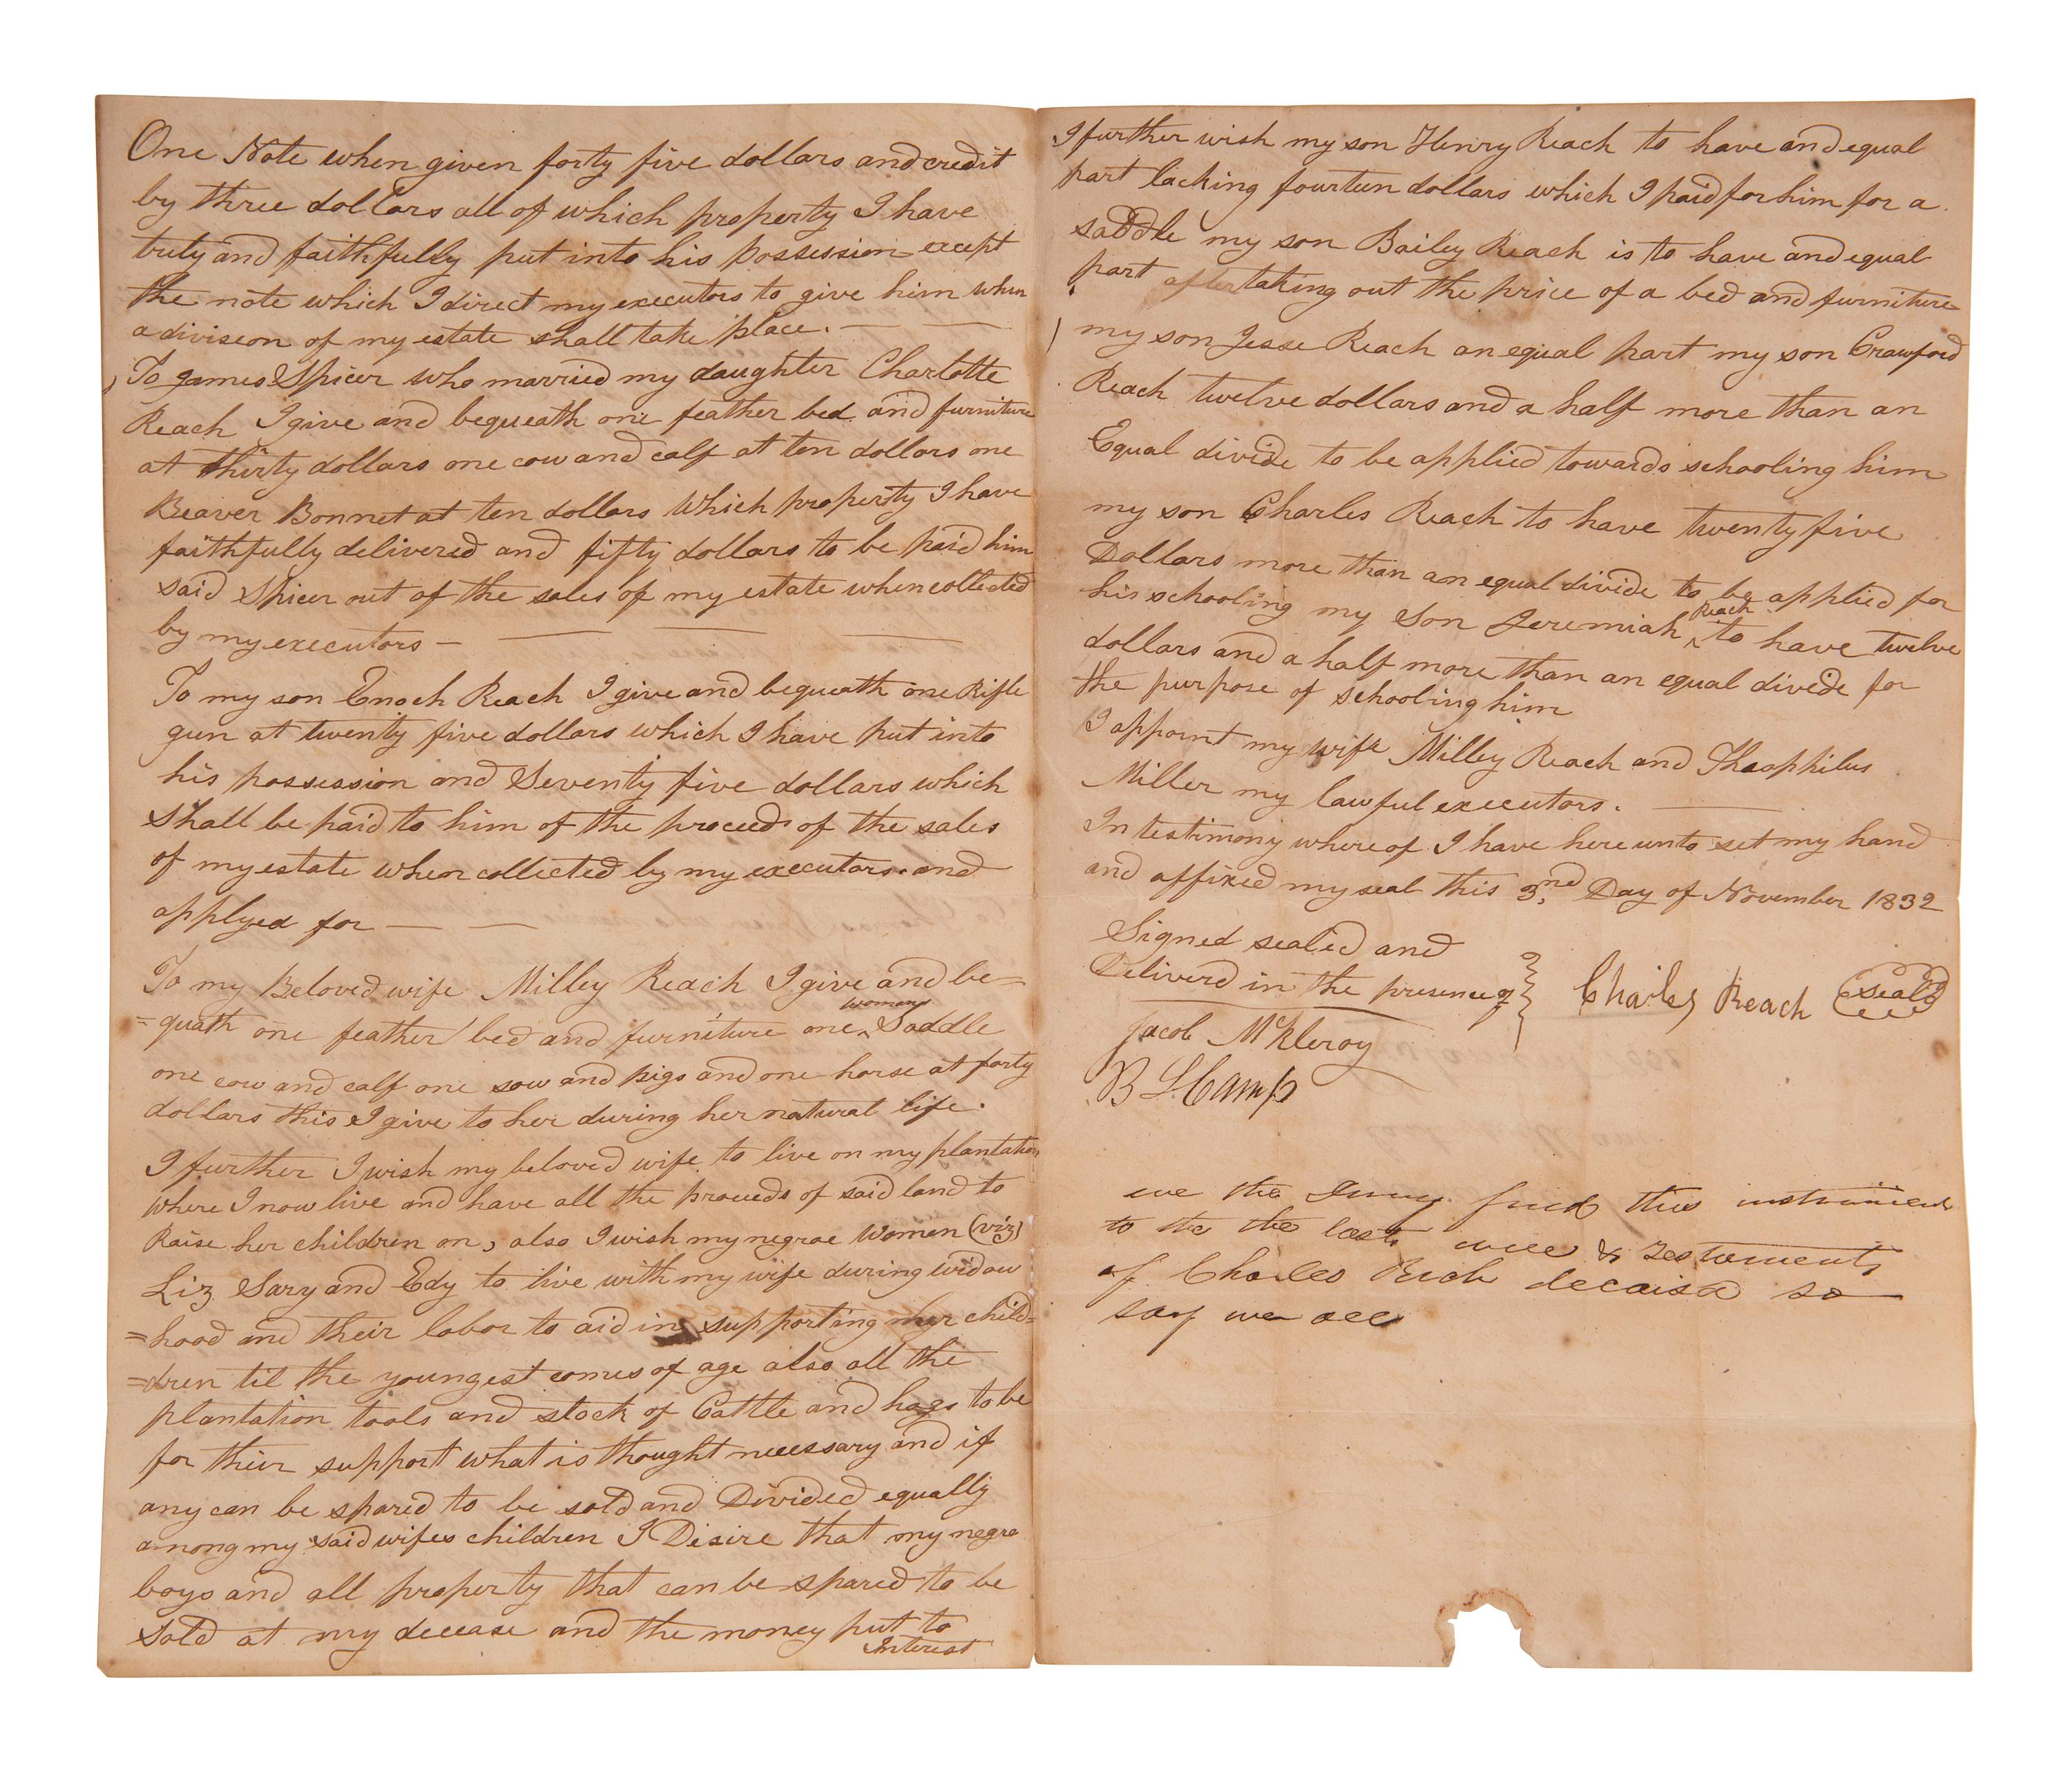 One Note when given forty five dollars and credit
by three dollars all of which property I have
truly and faithfully put into his possession except
the note which I direct my executors to give him when
a division of my estate shall take place. — —
To James Spicer who married my daughter Charlotte
Reach I give and bequeath one feather bed and furniture
at thirty dollars one cow and calf at ten dollars one
Beaver Bonnet at ten dollars which property I have
faithfully delivered and fifty dollars to be paid him
said Spicer out of the sales of my estate when collected
by my executors — — — —
To my son Enoch Reach I give and bequeath one Rifle
gun at twenty five dollars which I have put into
his possession and Seventy five dollars which
shall be paid to him of the proceeds of the sales
of my estate when collected by my executors. and
applyed for — —
To my Beloved wife Milley Reach I give and be=
=quath one feather bed and furniture one womans Saddle
one cow and calf one sow and pigs and one horse at forty
dollars this I give to her during her natural life.
I further I wish my beloved wife to live on my plantation
where I now live and have all the proceeds of said land to
Raise her children on, also I wish my negroe women (viz)
Liz Sary and Edy to live with my wife during widow
=hood and their labor to aid in supporting her child=
=dren til the youngest comes of age also all the
plantation tools and stock of Cattle and hogs to be
for their support what is thought necessary and if
any can be spared to be sold and Divided equally
among my said wifes children I Disire that my negro
boys and all property that can be spared to be
sold at my decease and the money put to
Interest
I further wish my son Henry Reach to have and equal
part lacking fourteen dollars which I paid for him for a
saddle my son Bailey Reach is to have and equal
part after taking out the price of a bed and furniture
my son Jesse Reach an equal part my son Crawford
Reach twelve dollars and a half more than an
Equal divide to be applied towards schooling him
my son Charles Reach to have twenty five
Dollars more than an equal divide to be applied for
his schooling my son Jeremiah Reach to have twelve
dollars and a half more than an equal divide for
the purpose of schooling him
I appoint my wife Milley Reach and Theophilus
Miller my lawful executors. —
In testimony where of I have here unto set my hand
and affixed my seal this 3nd Day of November 1832
Signed sealed and
Deliverd in the presence of
Charles Reach (seal)
Jacob McKleroy
B L Camp
we the Jury find this instrument
to be the last will & Testament
of Charles Reach decaisd so
say we all